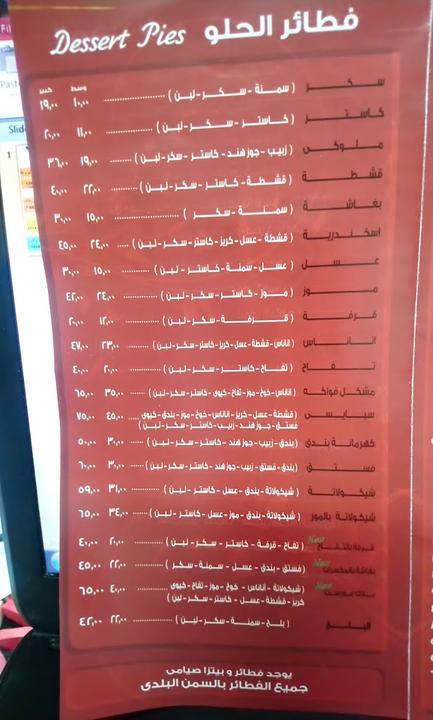 فطائر الحلو Dessert Pies
وسط كبير
سكر ( سمنة - سكر - لبن ) ١٠,٠٠ ١٩,٠٠
كاستر ( كاستر - سكر - لبن ) ١١,٠٠ ٢٠,٠٠
ملوكى ( زبيب - جوز هند - كاستر - سكر - لبن ) ١٩,٠٠ ٣٦,٠٠
قشطة ( قشطة - كاستر - سكر - لبن ) ٢٢,٠٠ ٤٠,٠٠
بغاشة ( سمنة - سكر ) ١٥,٠٠ ٣٠,٠٠
اسكندرية ( قشطة - عسل - كريز - كاستر - سكر - لبن ) ٢٤,٠٠ ٤٥,٠٠
عسل ( عسل - سمنة - كاستر - لبن ) ١٥,٠٠ ٣٠,٠٠
موز ( موز - كاستر - سكر - لبن ) ٢٤,٠٠ ٤٢,٠٠
قرفة ( قرفة - سكر - لبن ) ١٢,٠٠ ٢٠,٠٠
اناناس ( اناناس - قشطة - عسل - كريز - كاستر - سكر - لبن ) ٢٣,٠٠ ٤٧,٠٠
تفاح ( تفاح - كاستر - سكر - لبن ) ٢٠,٠٠ ٤٠,٠٠
مشكل فواكه ( اناناس - خوخ - موز - تفاح - كيوى - كاستر - سكر - لبن ) ٣٥,٠٠ ٦٥,٠٠
سبايسى ( قشطة - عسل - كريز - اناناس - خوخ - موز - بندق - كيوى ٤٥,٠٠ ٧٥,٠٠
فستق - جوز هند - زبيب - كاستر - سكر - لبن )
كهرمانة بندق ( بندق - زبيب - جوز هند - كاستر - سكر - لبن ) ٣٠,٠٠ ٥٠,٠٠
فستق ( بندق - فستق - زبيب - جوز هند - كاستر - سكر - لبن ) ٣٠,٠٠ ٦٠,٠٠
شيكولاتة ( شيكولاتة - بندق - عسل - كاستر - لبن ) ٣١,٠٠ ٥٩,٠٠
شيكولاتة بالموز ( شيكولاتة - بندق - موز - عسل - كاستر - لبن ) ٣٤,٠٠ ٦٥,٠٠
New
قرفة بالتفاح ( تفاح - قرفة - كاستر - سكر - لبن ) ٢٠,٠٠ ٤٠,٠٠
New
بغاشة بالمكسرات ( فستق - بندق - عسل - سمنة - سكر ) ٢٢,٠٠ ٤٥,٠٠
New
( شيكولاتة - أناناس - خوخ - موز - تفاح - كيوى ٤٠,٠٠ ٦٥,٠٠
كريز - قشطة - عسل - كاستر - سكر - لبن )
البلح ( بلح - سمنة - سكر - لبن ) ٢٢,٠٠ ٤٢,٠٠
يوجد فطائر و بيتزا صيامى
جميع الفطائر بالسمن البلدى